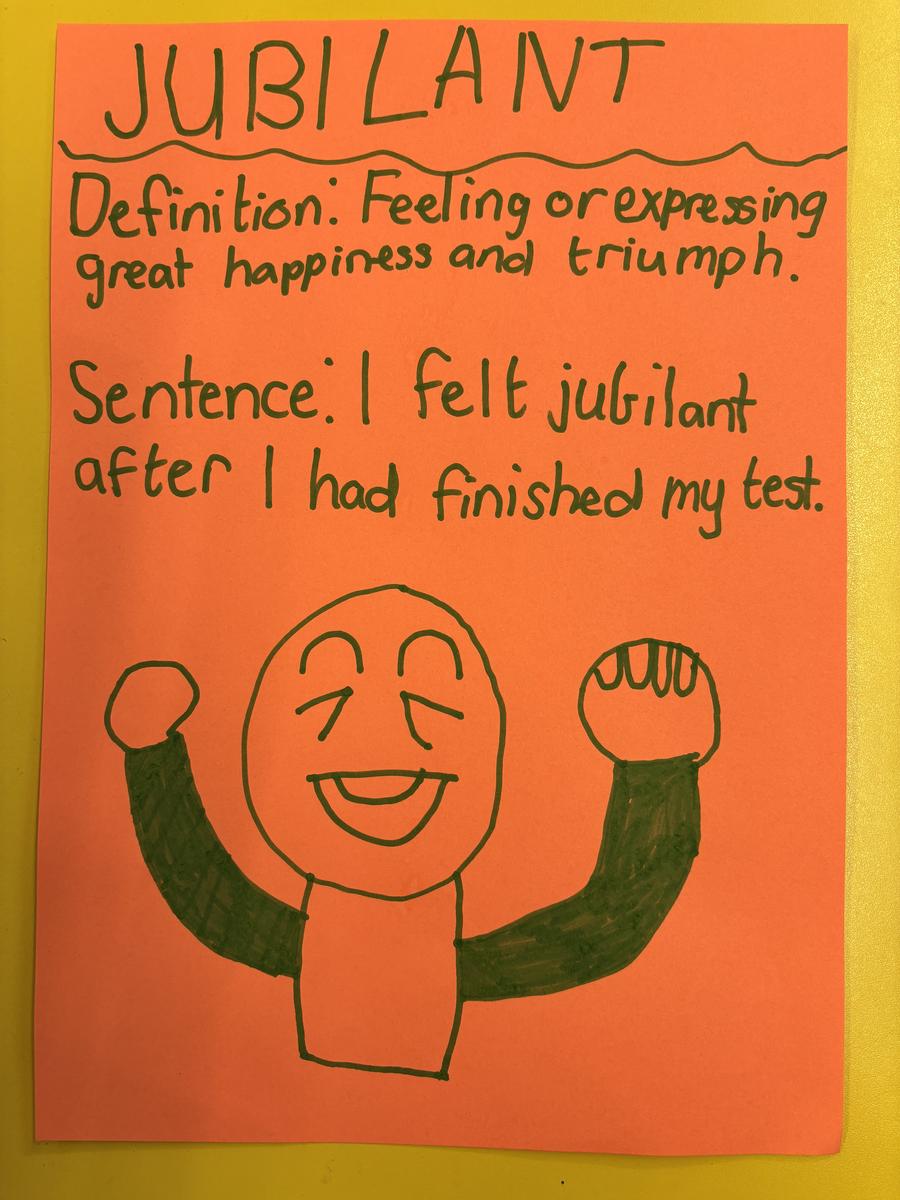 JUBILANT
Definition: Feeling or expressing
great happiness and triumph.
Sentence: I felt jubilant
after I had finished my test.